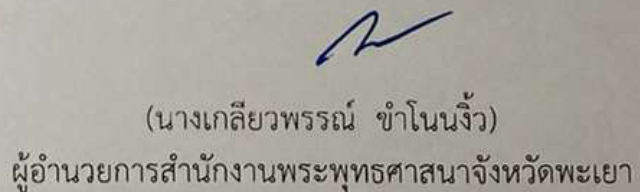 (นางเกลียวพรรณ์ ขำโนนงิ้ว)
ผู้อำนวยการสำนักงานพระพุทธศาสนาจังหวัดพะเยา